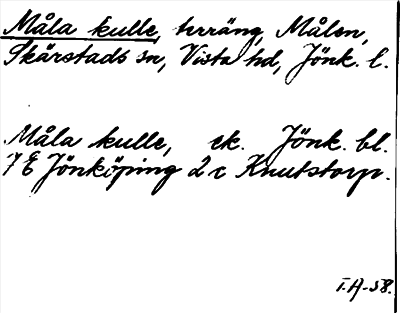 Måla kulle, terräng, Målen,
Skärstads sn, Vista hd, Jönk. l.
Måla kulle, ek. Jönk. bl.
7 E Jönköping 2 c Knutstorp.
I.H-58.